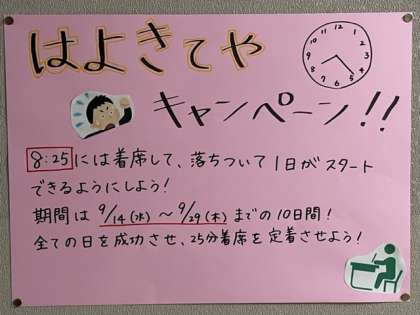 はよきてや
キャンペーン!!
12 1 2 3 4 5 6 7 8 9 10 11
8:25には着席して、落ちついて1日がスタート
できるようにしよう!
期間は9/14(水)〜9/29(木)までの10日間!
全ての日を成功させ、25分着席を定着させよう!